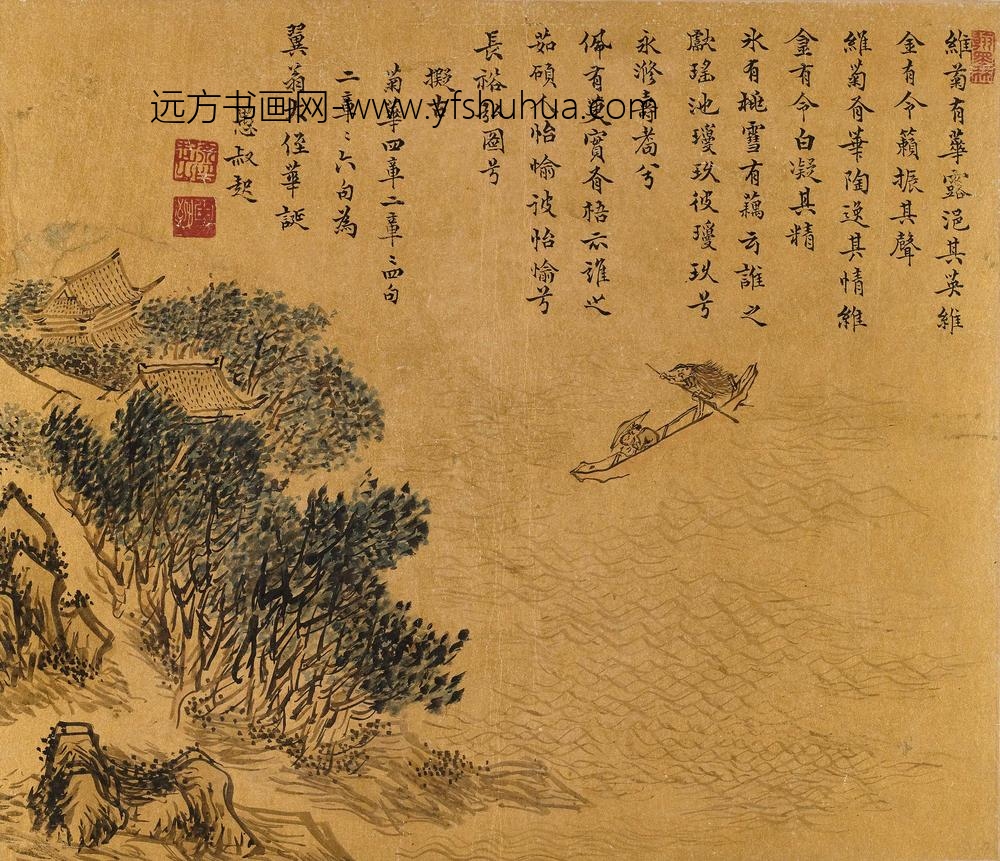 維菊有華露浥其英維
金有令籟振其聲
維菊有華陶逸其情維
金有令白凝其精
氷有桃雪有藕云誰之
獻瑤池瓊玖彼瓊玖兮
永滌壽耈兮
佩有實有梧云誰之
茹碩怡愉彼怡愉兮
長裕圖兮
擬古
菊華四章二章三四句
二章三六句為
翼翁侄華誕
愚叔起
远方书画网-www.yfshuhua.com